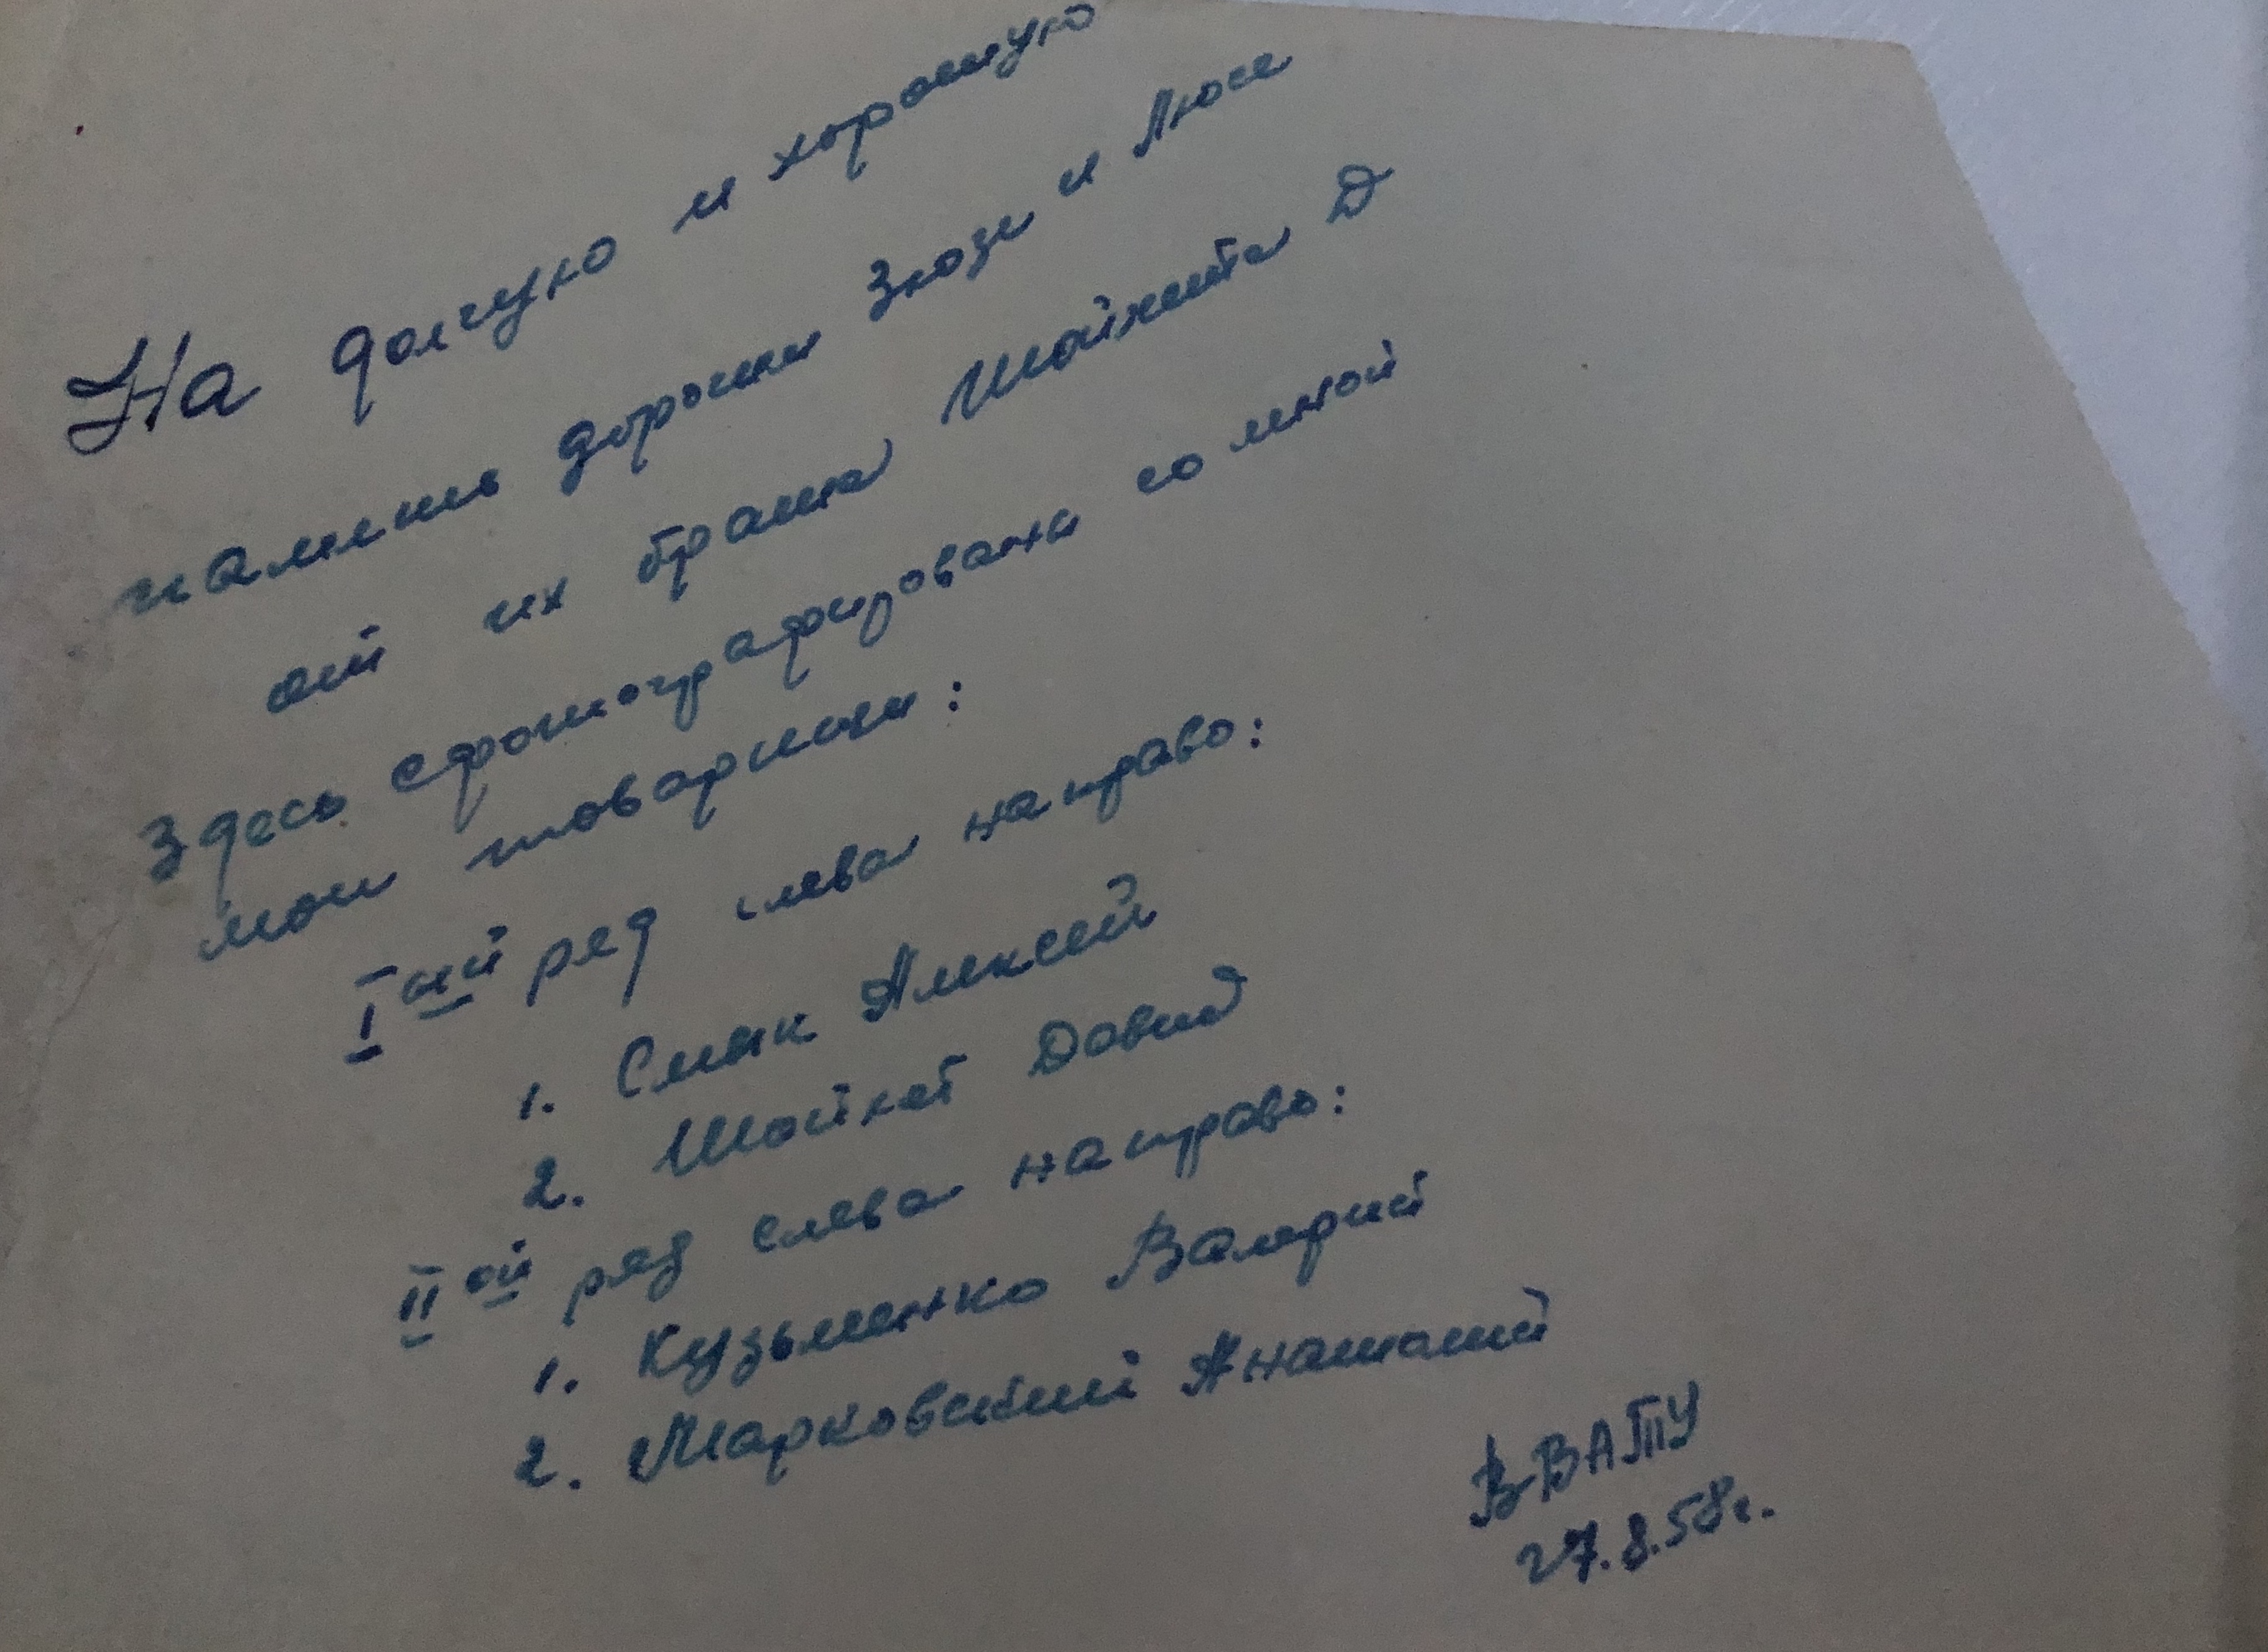 На долгую и хорошую
память дорогим Зюзе и Люсе
от их брата Шойхета Д
Здесь сфотографировани со мной
мои товарищи:
Iый ряд слева направо:
1. Смык Алексей
2. Шойхет Давид
IIой ряд слева направо:
1. Кузьменко Валерий
2. Марковский Анатолий
ВВАТУ
27.8.58г.